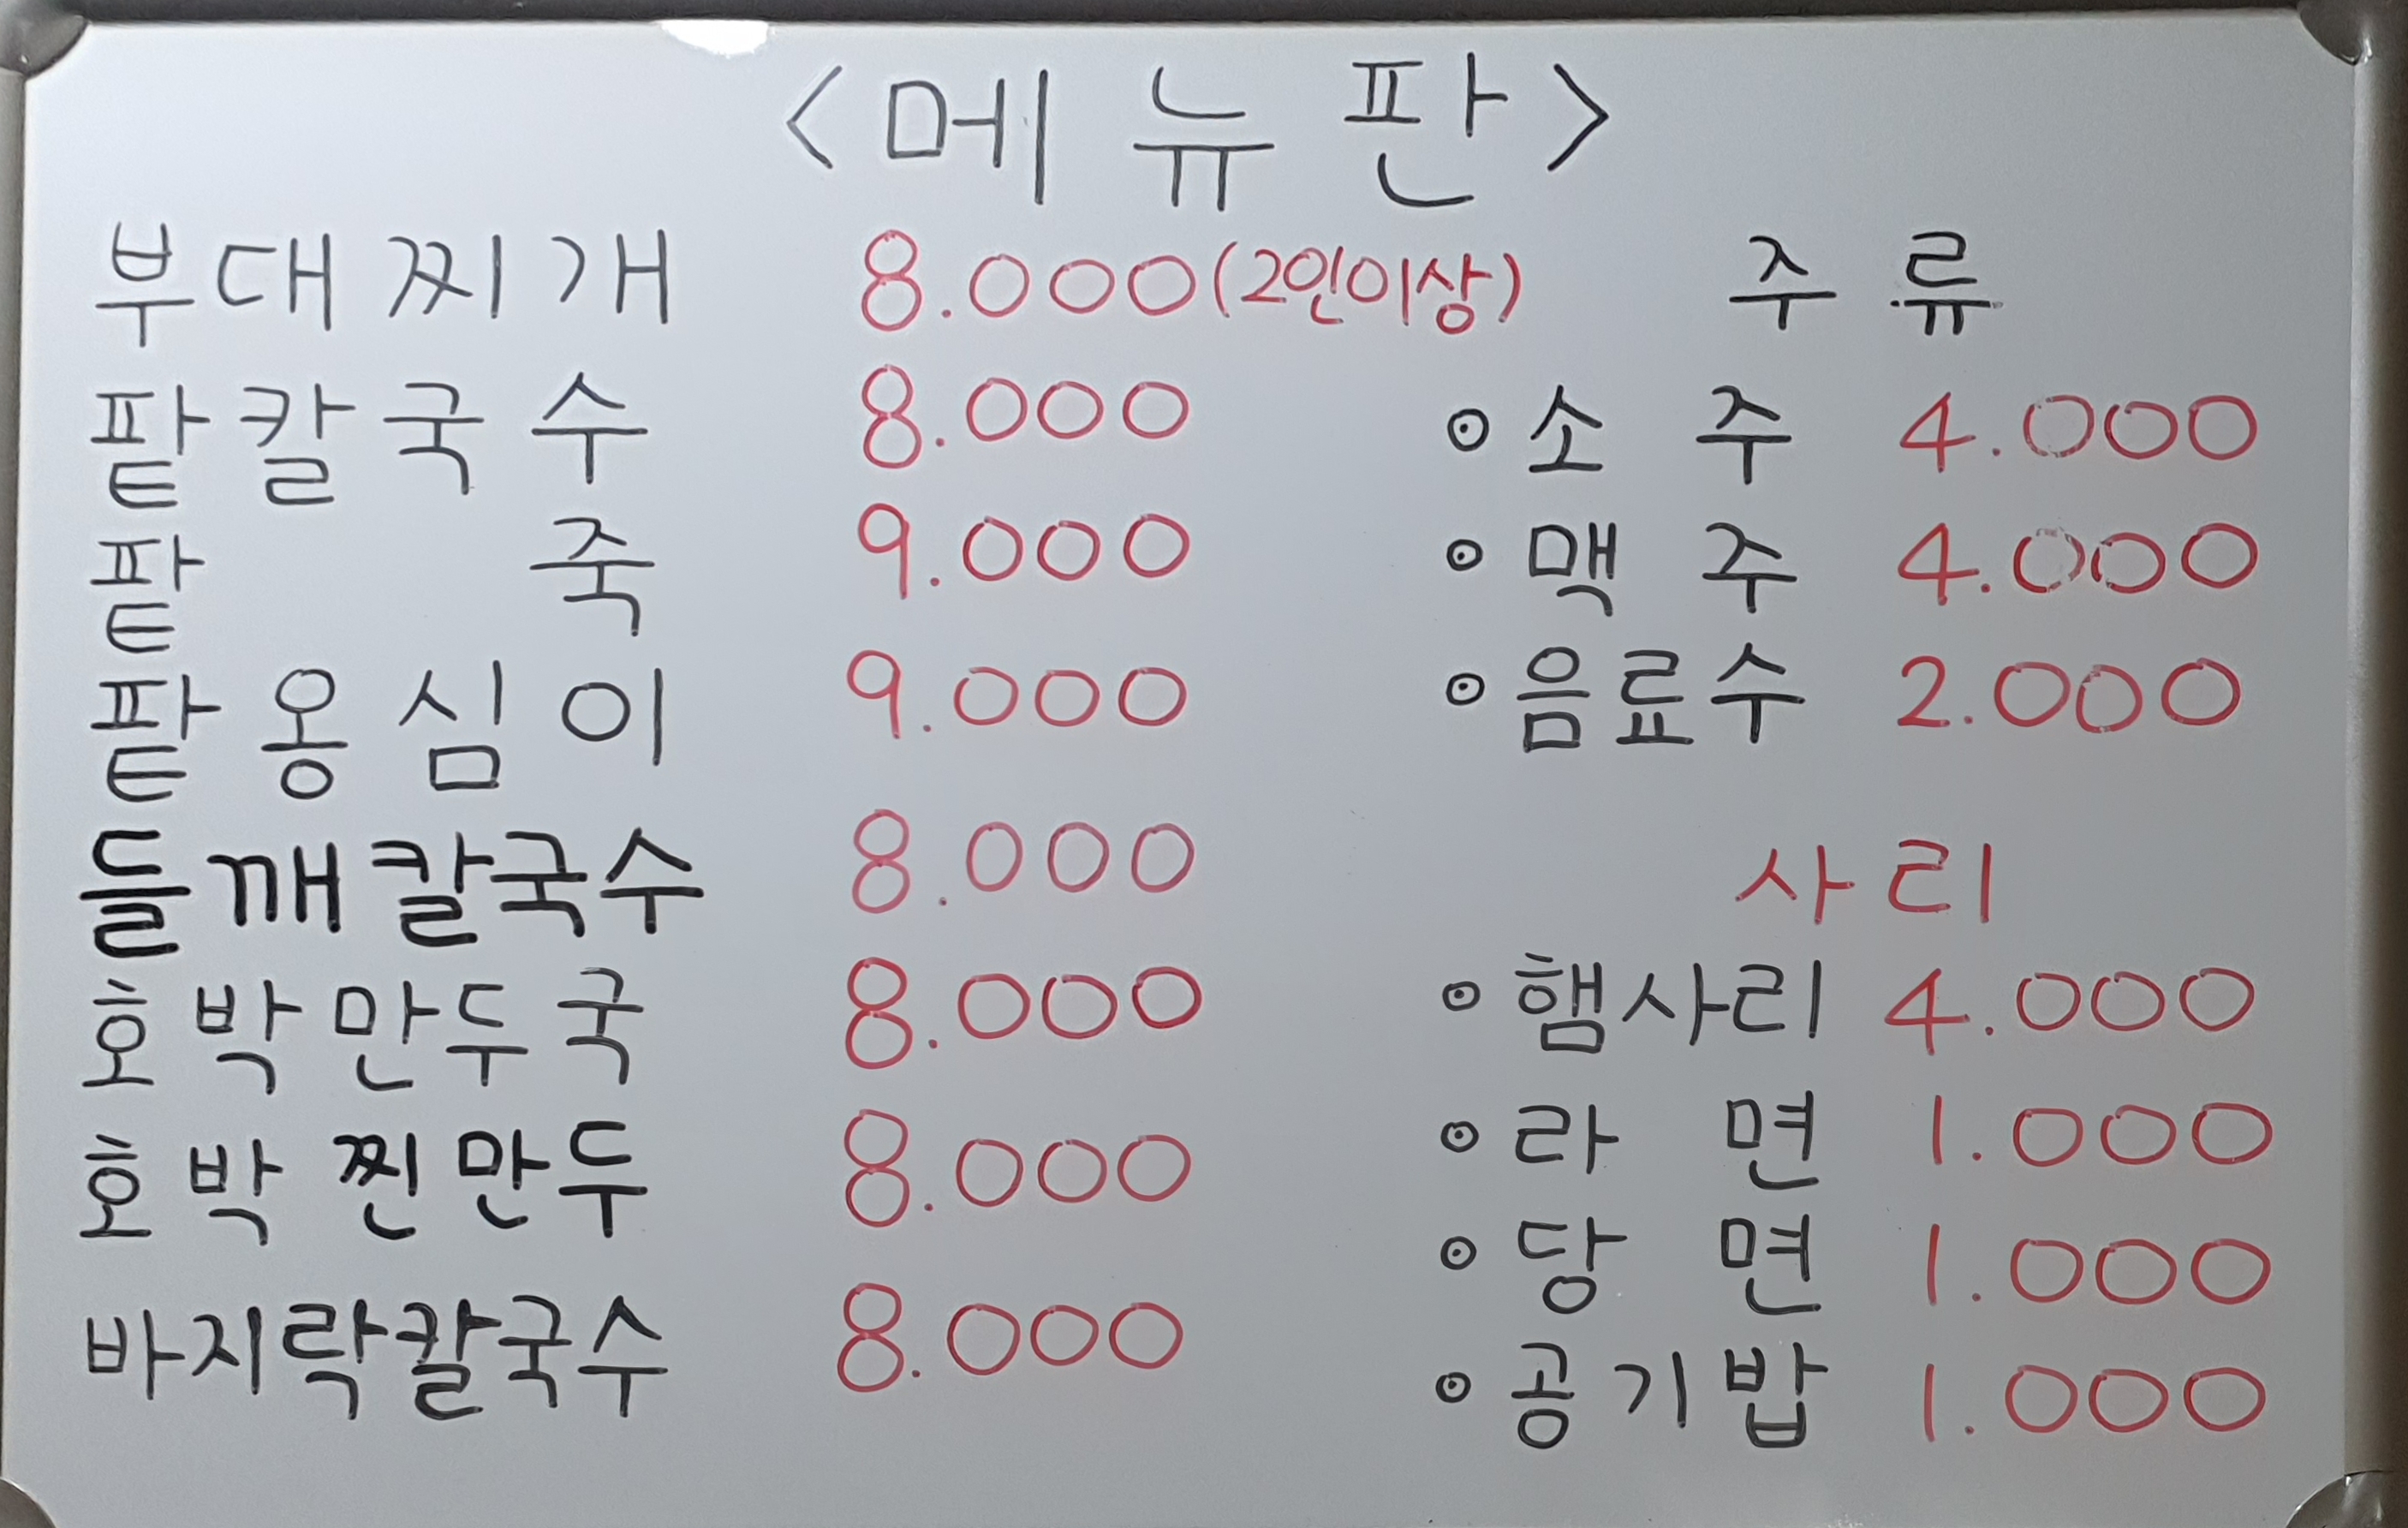 <메뉴판>
부대찌개 8.000(2인이상)
팥칼국수 8.000
팥죽 9.000
팥옹심이 9.000
들깨칼국수 8.000
호박만두국 8.000
호박찐만두 8.000
바지락칼국수 8.000
주류
⊙소주 4.000
⊙맥주 4.000
⊙음료수 2.000
사리
⊙햄사리 4.000
⊙라면 1.000
⊙당면 1.000
⊙공기밥 1.000